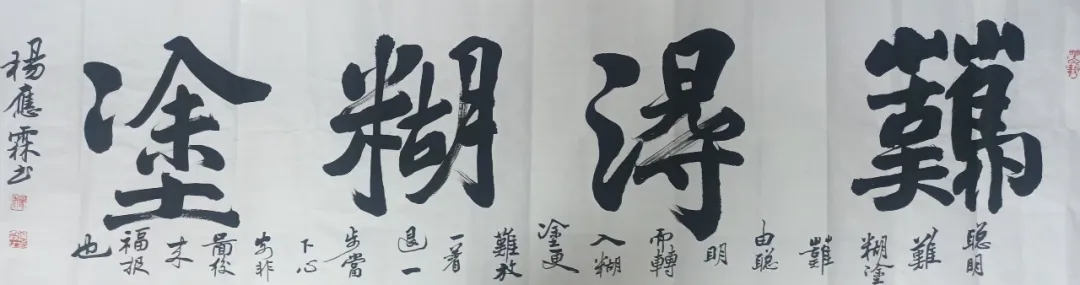 難
淂
糊
塗
聪明
難
糊塗
難
由聪
明
而轉
入糊
塗更
難放
一著
退一
步當
下心
安非
圖後
来
福报
也
楊應霖书